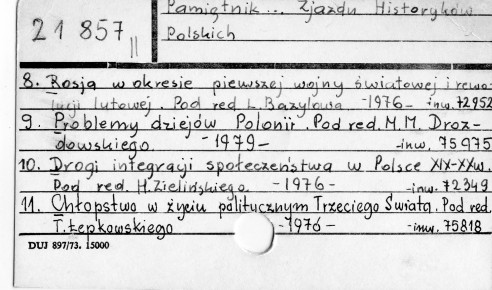 Pamiętnik... Zjazdu Historyków
21 857 II
Polskich
8. Rosja w okresie pierwszej wojny światowej i rewo-
lucji lutowej. Pod red. L. Bazylowa. -1976- inw. 72952
9. Problemy dziejów Polonii. Pod red. M.M. Droz-
dowskiego. -1979- -inw. 75975
10. Drogi integracji społeczeństwa w Polsce XIX-XXw.
Pod red. H. Zielińskiego. -1976- -inw. 72349
11. Chłopstwo w życiu politycznym Trzeciego Świata. Pod red.
T. Łepkowskiego -1976- -inw. 75818
DUJ 897/73. 15000